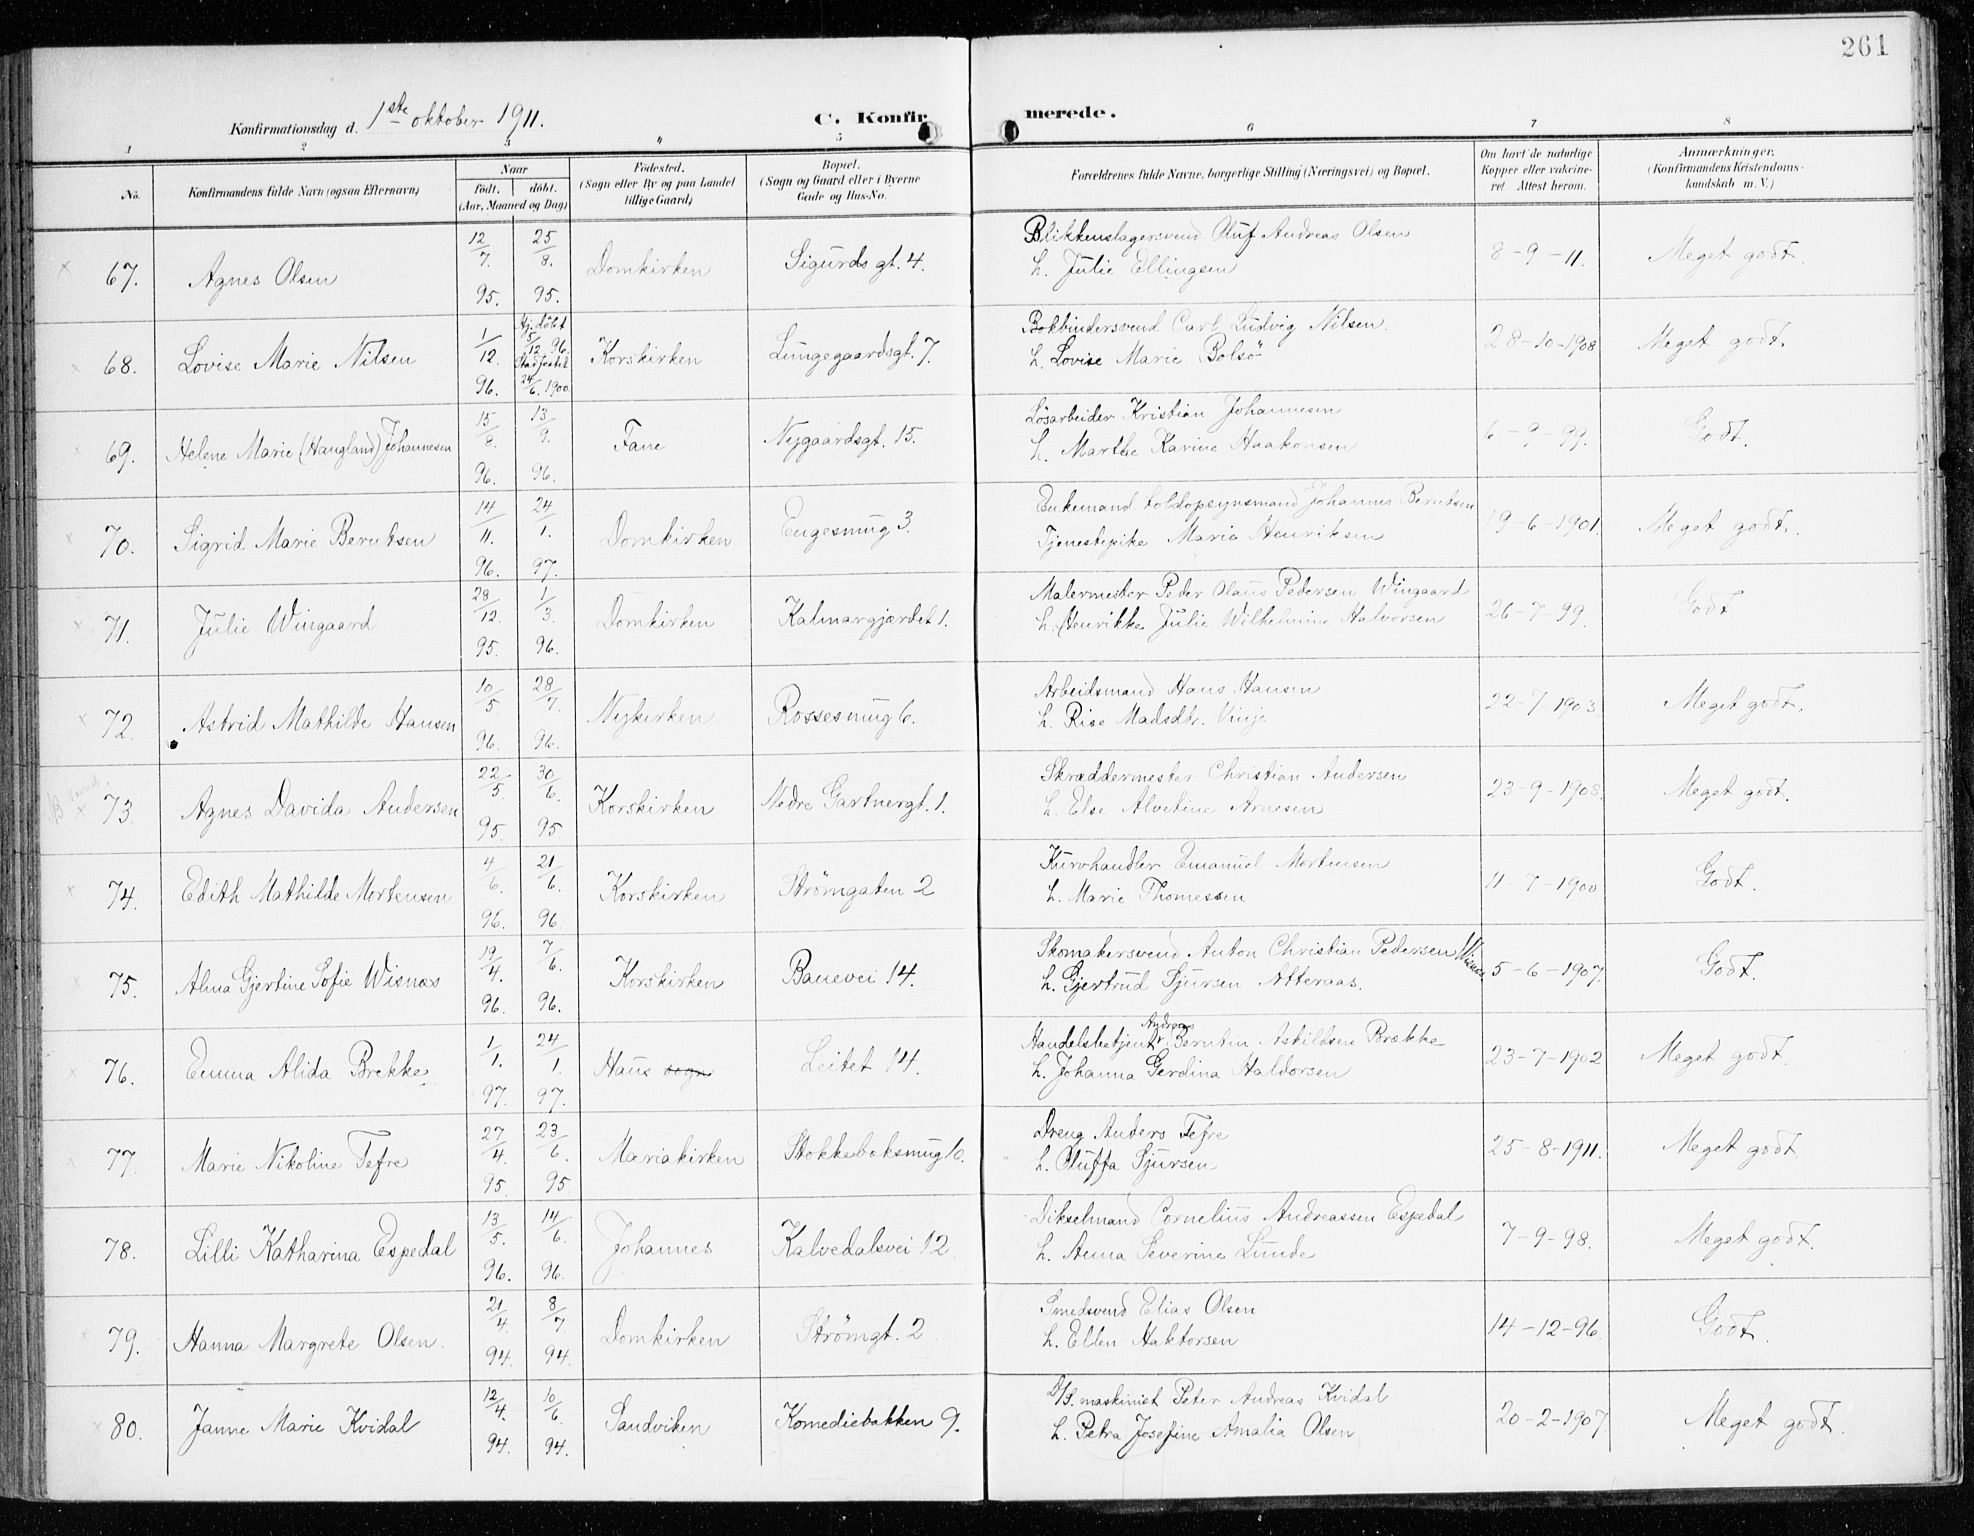 261
Konfirmationsdag d. 1ste oktober 1911.
C. Konfirmerede.
1 2 3 4 5 6 7 8
No.
Konfirmandens fulde Navn (ogsaa Efternavn)
Naar
født. døbt.
(Aar, Maaned og Dag)
Fødested.
(Sogn eller By og paa Landet
tillige Gaard)
Bopæl.
(Sogn og Gaard eller i Byerne
Gade og Hus-No.
Forældrenes fulde Navne, borgerlige Stilling (Næringsvei) og Bopæl.
Om havt de naturlige
Kopper eller vakcine-
ret. Attest herom.
Anmærkninger.
(Konfirmandens Kristendoms-
kundskab m. V.)
67. Agnes Olsen 12/7. 95. 25/8. 95. Domkirken Sigurds gt. 4.
Blikkenslagersvend Oluf Andreas Olsen
h. Julie Ellingsen
8-9-11. Meget godt.
68. Lovise Marie Nilsen 1/12. 96. Hj. døbt 5/12 96. Stadfestet 24/6. 1900. Korskirken Lungegaardsgt. 7.
Bokbindersvend Carl Ludvig Nilsen.
h. Lovise Marie Bolsö
28-10-1908 Meget godt.
69. Helene Marie (Haugland) Johannesen 15/8. 96. 13/9. 96. Fane Nygaardsgt. 15.
Løsarbeider Kristian Johannesen
h. Marthe Karine Haakonsen
6-9-99. Godt.
70. Sigrid Marie Berntsen 14/11. 96. 24/1. 97. Domkirken Engesmug 3
Enkemand toldopsynsmand Johannes Berntsen
Tjenestepike Marie Henriksen
19-6-1901. Meget godt.
71. Julie Wingaard 28/12. 95. 1/3. 96. Domkirken Kalmargjærdet 1.
Malermester Peder Olaus Pedersen Wingaard
h. Henrikke Julie Wilhelmine Halvorsen
26-7-99. Godt.
72. Astrid Mathilde Hansen 10/5. 96. 28/7. 96. Nykirken Rossesmug 6.
Arbeidsmand Hans Hansen
h. Rise Madsdtr. Vinje
22-7-1903 Meget godt.
73. Agnes Davida Andersen 22/5 95. 30/6. 95. Korskirken Nedre Gartnergt. 1.
Skræddermester Christian Andersen
h. Else Alvetine Arnesen
23-9-1908. Meget godt.
74. Edith Mathilde Mortensen 4/6. 96. 21/6. 96. Korskirken Strömgaten 2
Kurvhandler Emanuel Mortensen
h. Marie Thomessen
11-7-1900 Godt.
75. Alma Gjertine Sofie Wisnæs 19/4. 96. 7/6. 96. Korskirken Banevei 14.
Skomakersvend Anton Christian Pedersen Wisnæs
h. Gjertrud Sjursen Atteraas.
5-6-1907. Godt.
76. Emma Alida Brekke 1/1. 97. 24/1. 97. Haus sogn Leitet 14.
Andreas
Handelsbetjent Berntin Askildsen Brække
h. Johanna Gerdina Haldorsen
23-7-1902 Meget godt.
77. Marie Nikoline Tefre 27/4. 95. 23/6. 95. Mariakirken Stokkeboksmug 10.
Dreng Anders Tefre
h. Oluffa Sjursen
25-8-1911. Meget godt.
78. Lilli Katharina Espedal 13/5. 96. 14/6. 96. Johannes Kalvedalsvei 12
Dikselmand Cornelius Andreassen Espedal
h. Anna Severine Lunde
7-9-98. Meget godt.
79. Hanna Margrete Olsen. 21/4. 94. 8/7. 94. Domkirken Strömgt. 2
Smedsvend Elias Olsen
h. Ellen Haktorsen
14-12-96. Godt.
80. Janne Marie Kvidal 12/4. 94. 10/6. 94. Sandviken Komediebakken 9.
D/S. maskinist Peter Andreas Kvidal
h. Petra Josefine Amalia Olsen
20-2-1907. Meget godt.